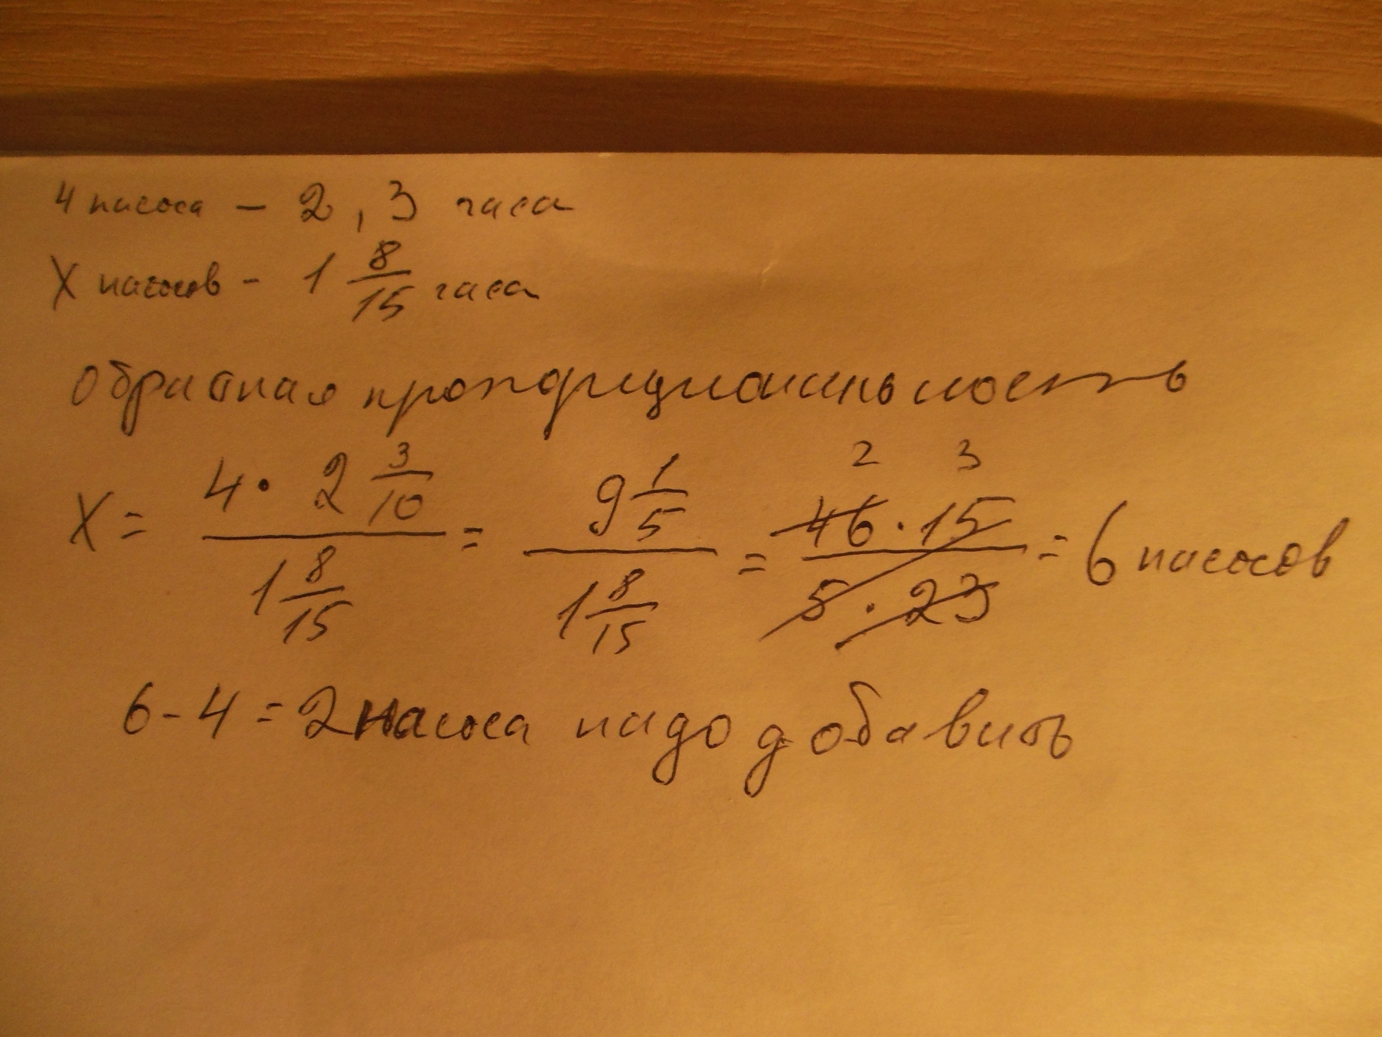 4 насоса - 2,3 часа
X насосов - 1 8/15 часа
обратная пропорциональность
X = (4 · 2 3/10) / (1 8/15) = (9 1/5) / (1 8/15) = (46 · 15) / (5 · 23) 2 3 = 6 насосов
6 - 4 = 2 насоса надо добавить